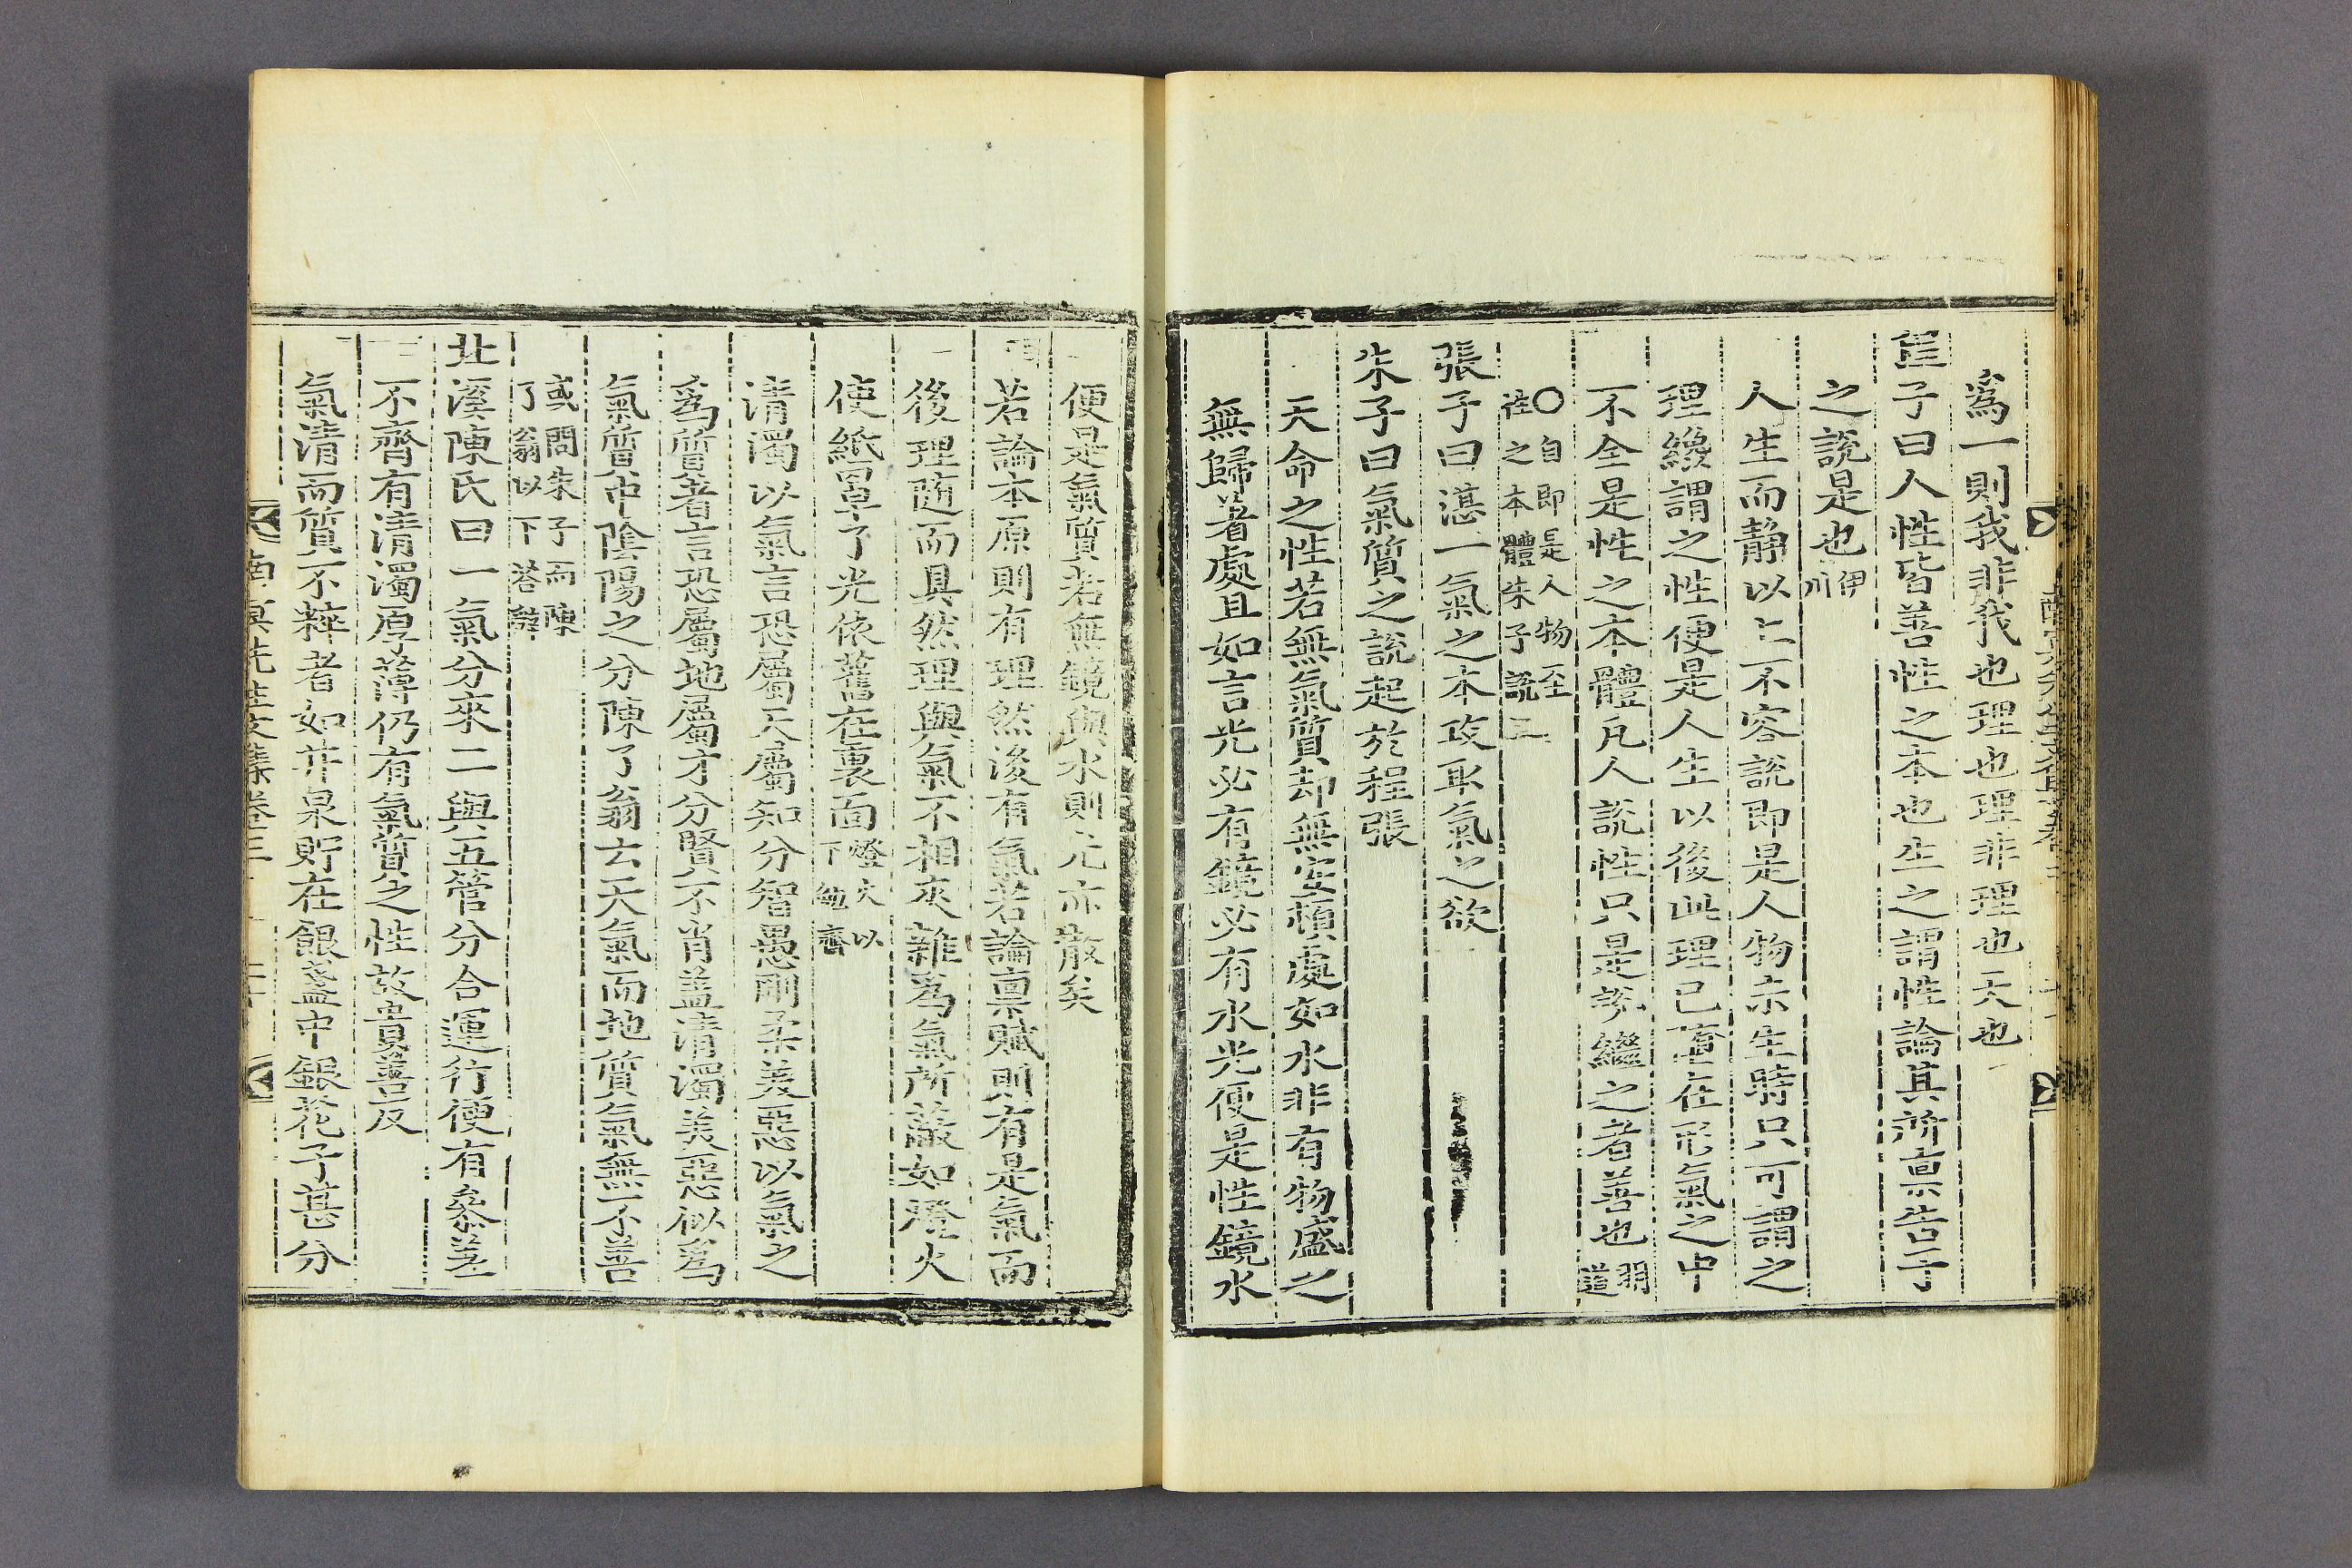 爲一則我非我也理也理非理也天也
子曰人性皆善性之本也生之謂性論其所禀告子
之說是也伊川
人生而靜以上不容說即是人物未生時只可謂之
理纔謂之性便是人生以後此理已墮在形氣之中
不全是性之本體凡人說性只是說繼之者善也
○自即是人物至
性之本體朱子說
張子曰湛一氣之本攻取氣之欲
朱子曰氣質之說起於程張
天命之性若無氣質却無安頓處如水非有物盛之
無歸着處且如言光必有鏡必有水光便是性鏡水
便是氣質若無鏡與水則光亦散矣
若論本原則有理然後有氣若論禀賦則有是氣而
後理随而具然理與氣不相夾雜爲氣所蔽如燈火
使紙罩了光依舊在裏面燈火以下
清濁以氣言恐屬天屬知分智愚剛柔美惡以氣之
爲質者言恐屬地屬才分賢不肖盖清濁美惡似爲
氣質中陰陽之分陳了翁云天氣而地質氣無不善
或問朱子而陳
了翁以下荅
北溪陳氏曰一氣分來二與五管分合運行便有參差
不齊有清濁厚薄仍有氣質之性故貴善反
氣清而質不粹者如井泉貯在銀盞中銀花子甚分